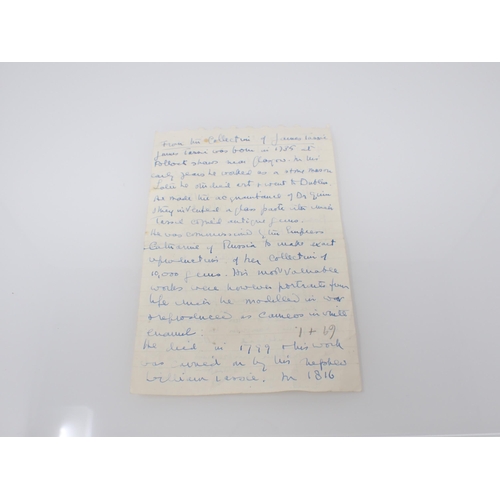 From the Collection of James Tassie
James Tassie was born in 1735 at
Pollokshaws near Glasgow. In his
early years he worked as a stone mason
Later he studied art & went to Dublin
He made the acquaintance of Dr Quin
They invented a glass paste with which
Tassie copied antique gems.
He was commissioned by the Empress
Catherine of Russia to make exact
reproductions of her collection of
10,000 gems. His most valuable
works were however portraits from
life which he modelled in wax
& reproduced as cameos in white
enamel.
He died in 1799 & his work
was carried on by his nephew
William Tassie. In 1816